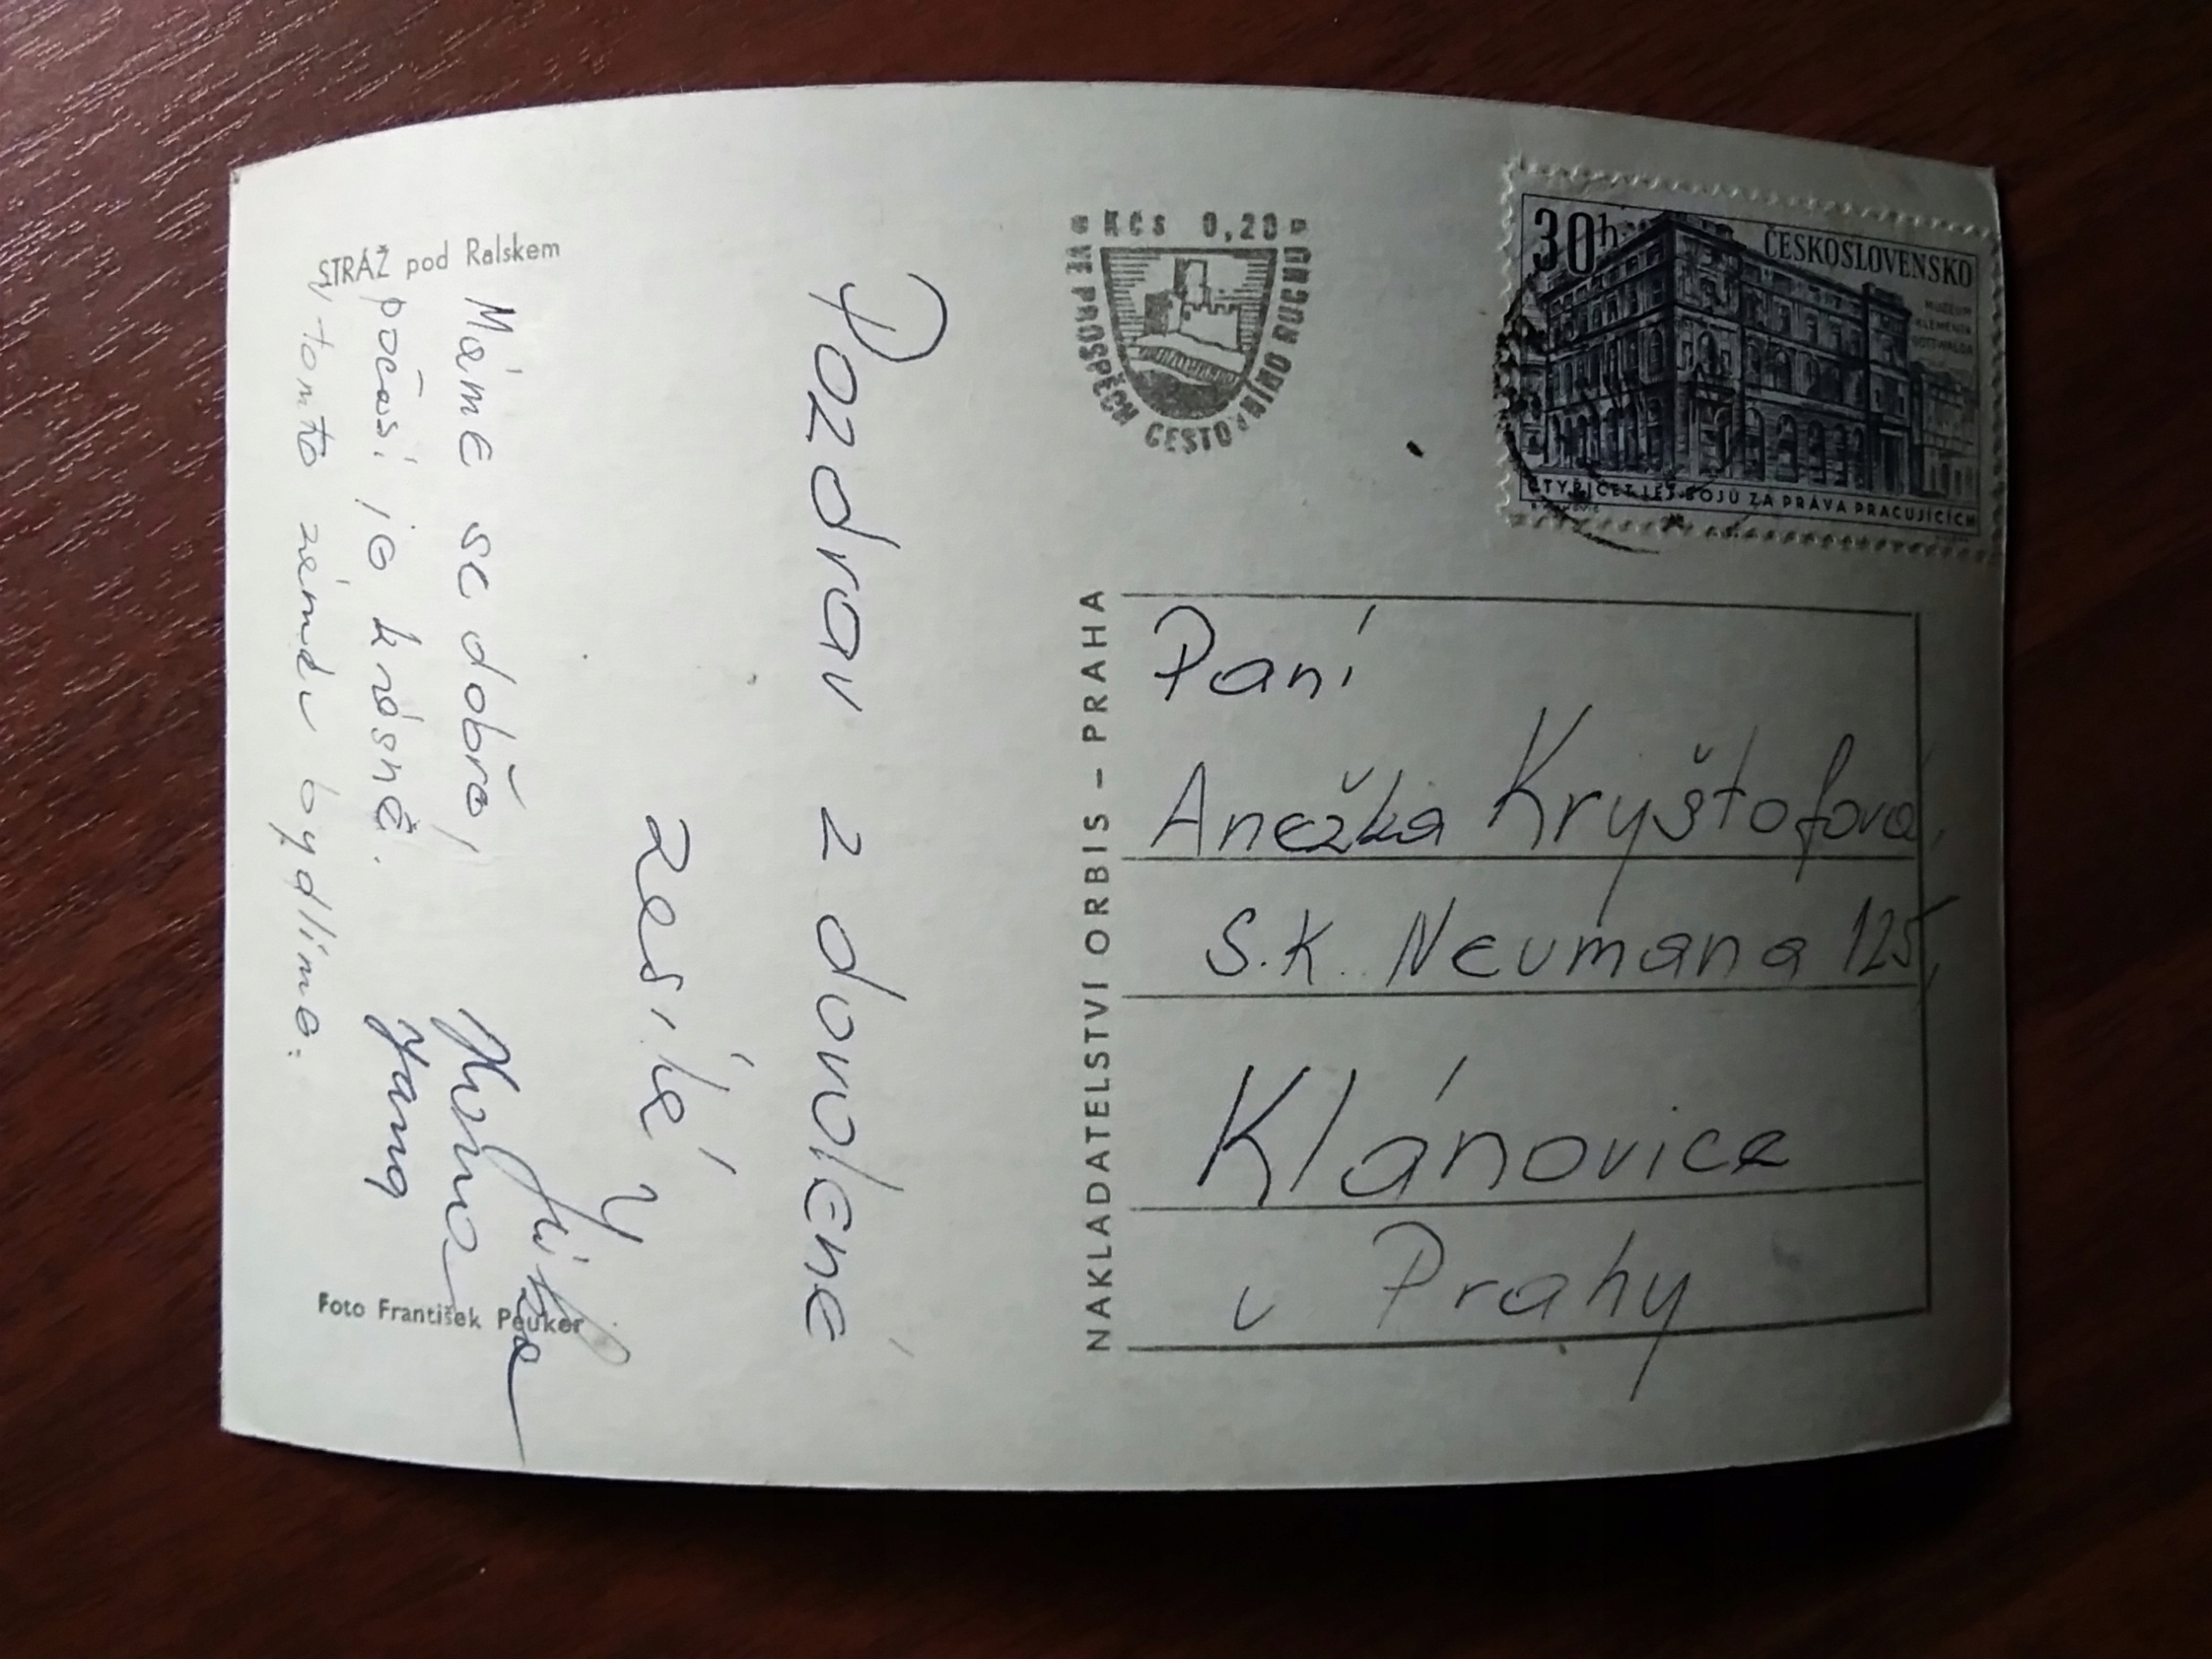 STRÁŽ pod Ralskem
Pozdrav z dovolené
zesílá
Máme se dobře,
počasí je krásně.
V tomto zámku bydlíme.
Jana
Foto František Peuker
Kčs 0,20
VE PROSPĚCH CESTOVNÍHO RUCHU
30h
ČESKOSLOVENSKO
MUZEUM
KLEMENTA
GOTTWALDA
ČTYŘICET LET BOJŮ ZA PRÁVA PRACUJÍCÍCH
NAKLADATELSTVÍ ORBIS – PRAHA
Paní
Anežka Kryštofová,
S.K. Neumana 125,
Klánovice
u Prahy